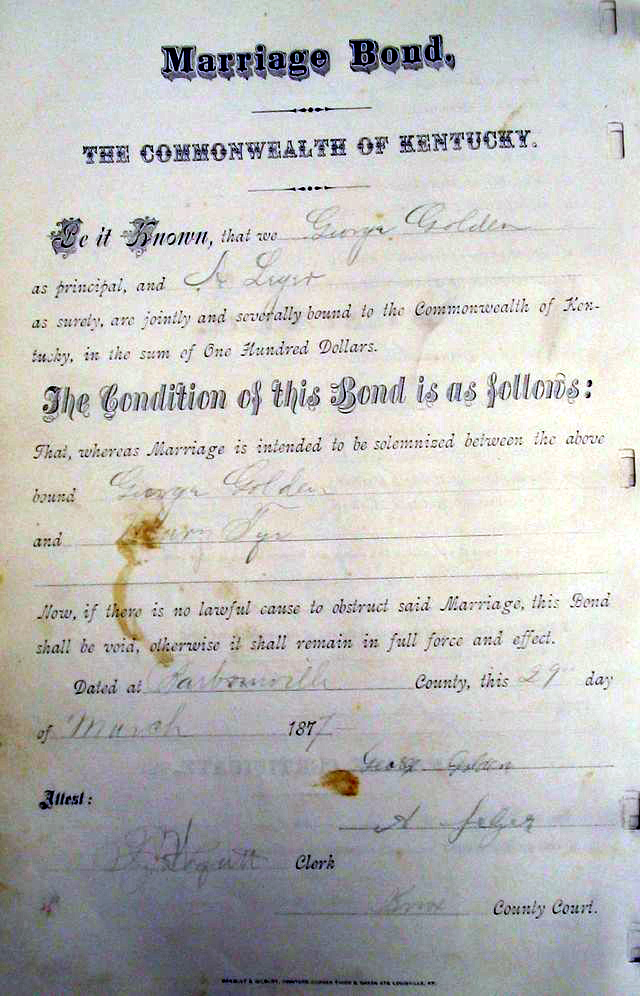 Marriage Bond.
THE COMMONWEALTH OF KENTUCKY.
Be it Known, that we George Golden
as principal, and A
as surety, are jointly and severally bound to the Commonwealth of Ken-
tucky, in the sum of One Hundred Dollars.
The Condition of this Bond is as follows:
That, whereas Marriage is intended to be solemnized between the above
bound George Golden
and
Now, if there is no lawful cause to obstruct said Marriage, this Bond
shall be void, otherwise it shall remain in full force and effect.
Dated at Barbourville County, this 29 day
of March 1877
George Golden
Attest:
A
Clerk
Knox County Court.